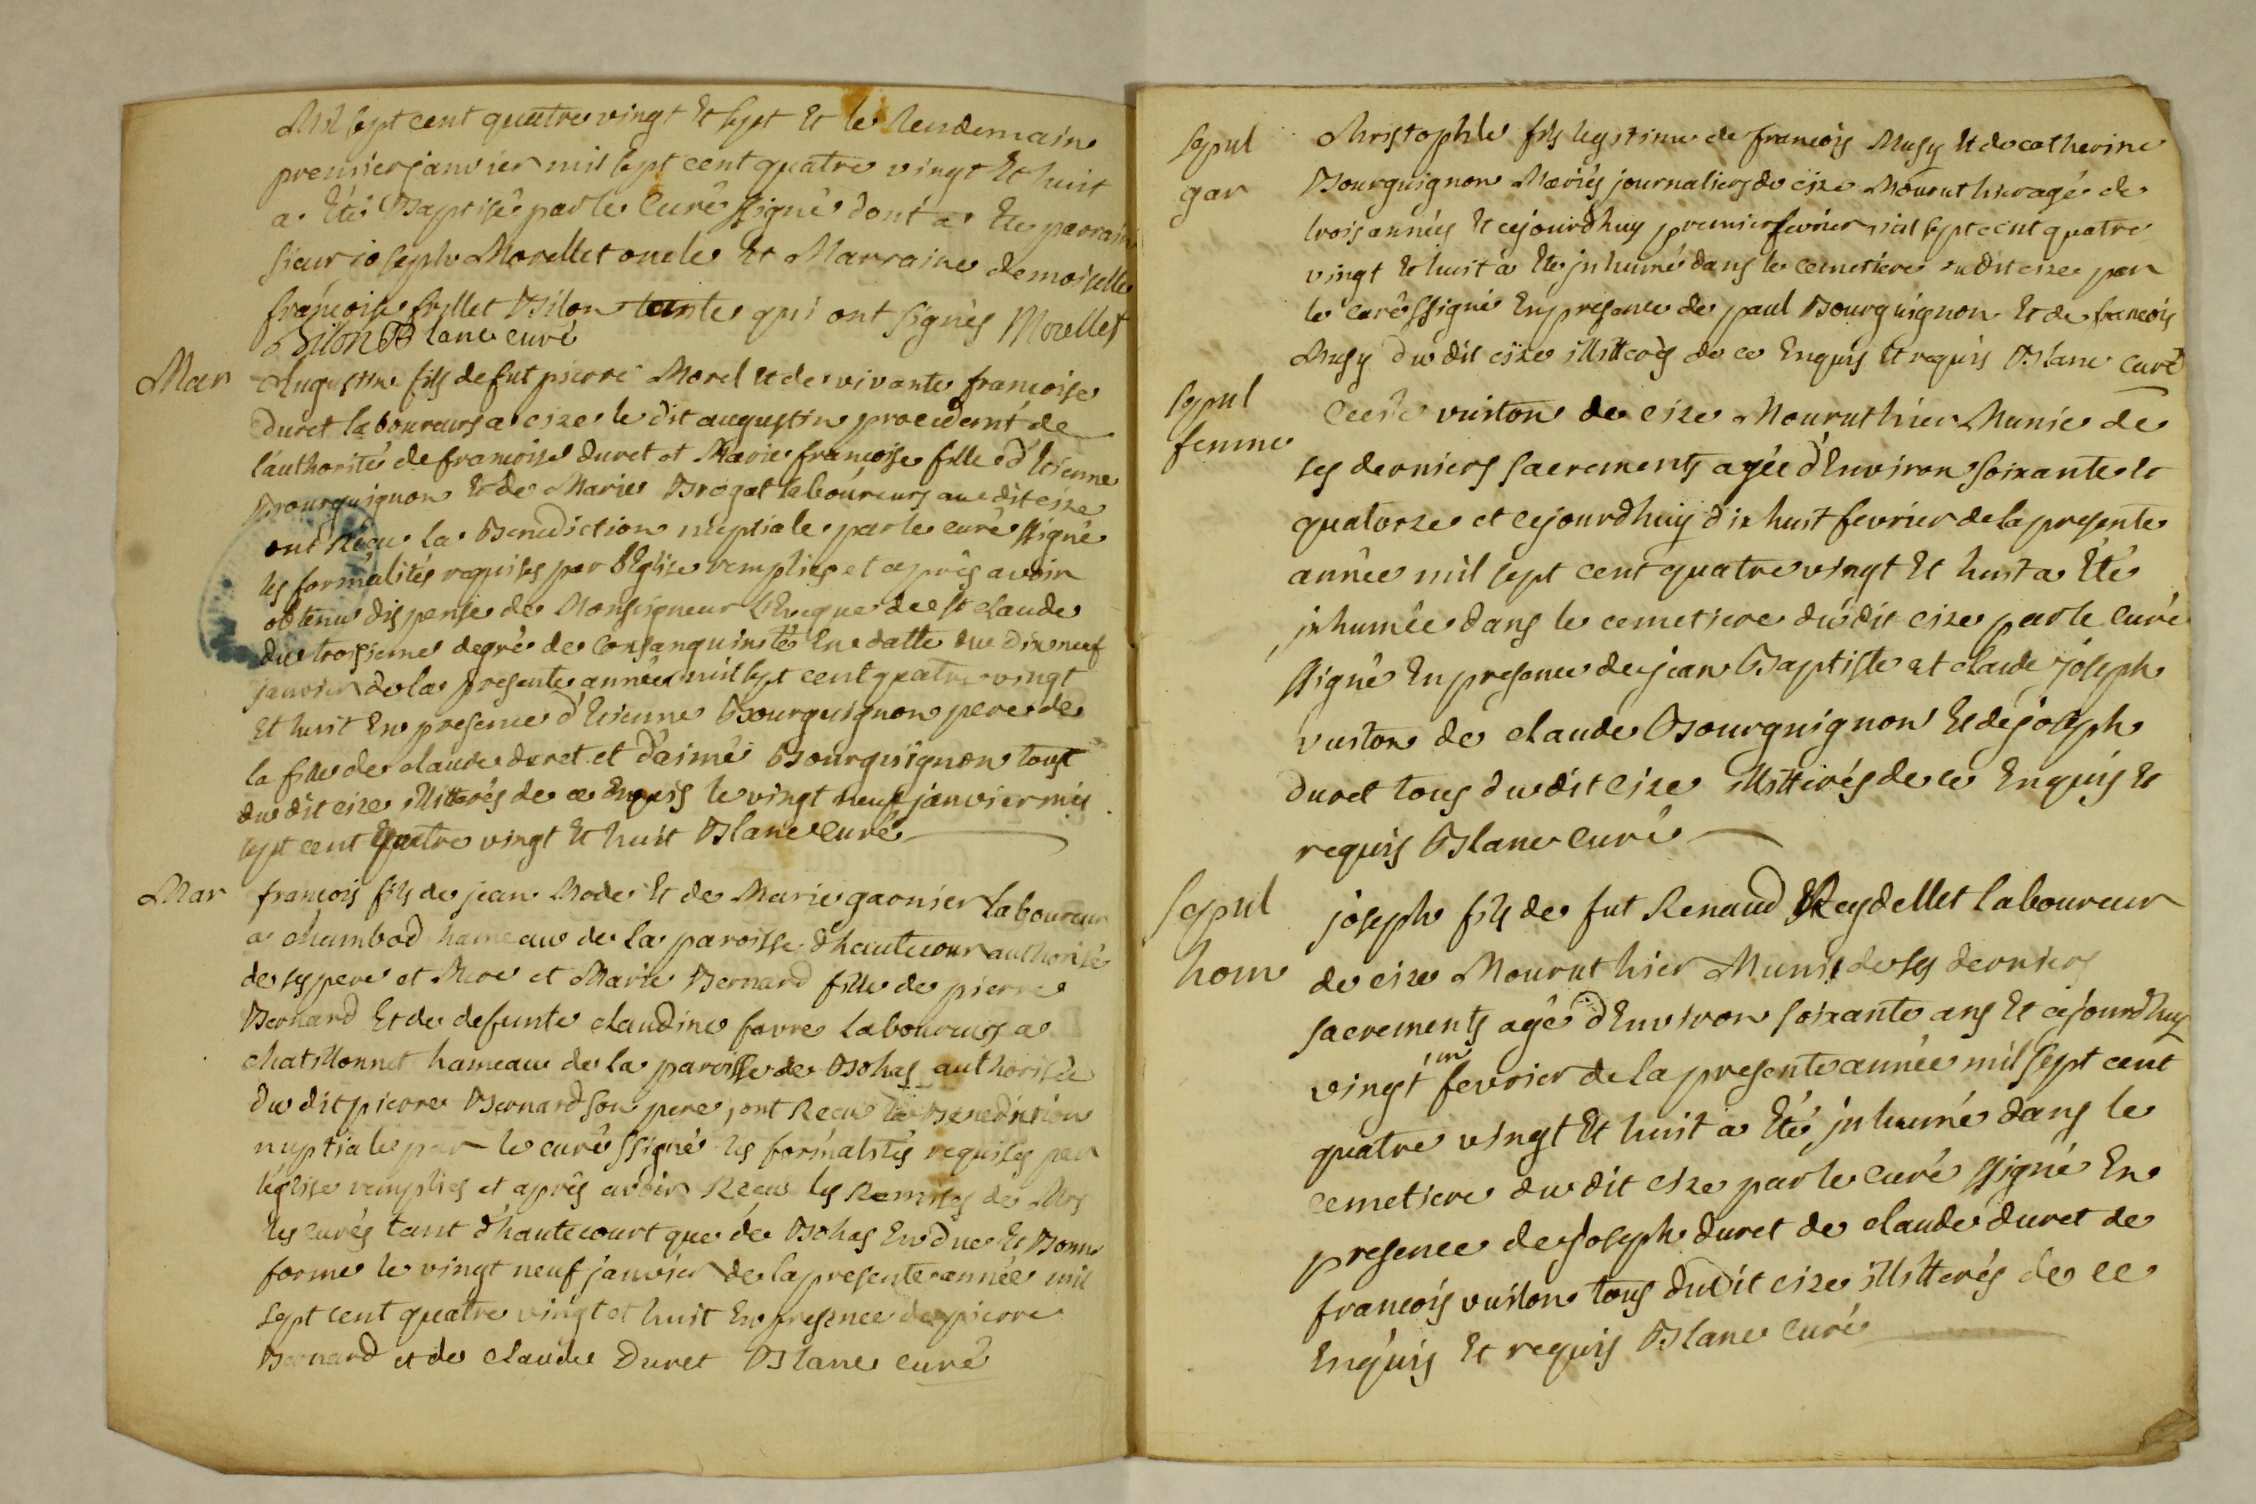 Mil sept cent quatre vingt Et sept Et le Lendemain
premier janvier mil sept cent quatre vingt Et huit
a Eté Baptisé par le Curé ssigné dont a Ete parrain
sieur joseph Morellet oncle Et Marraine demoiselle
françoise fillet Bilon tante qui ont signés Morellet
Bilon Blanc curé
Mar
Augustin fils de fut pierre Morel et de vivante francoise
Duret laboureurs a cize le dit augustin procedant de
l'authorité de francoise duret et Marie francoise fille d'Etienne
Bourguignon Et de Marie Brogat laboureurs au dit cize
ont Recu la Benediction nuptiale par le curé ssigné
les formalités requises par l'Eglise remplies et après avoir
obtenu dispense de Monseigneur l'Eveque de st claude
du troisieme degré de Consanguinité En datte du dix neuf
janvier de la presente année mil sept cent quatre vingt
Et huit En presence d'Etienne Bourguignon pere de
la fille de claude duret et d'aimé Bourguignon tous
du dit cize illitterés de ce Enquis le vingt neuf janvier mil
sept cent quatre vingt Et huit Blanc Curé
Mar
francois fils de jean Rode Et de Marie garnier laboureur
a chambod hameau de la paroisse d'hautecour authorisé
de ses pere et Mere et Marie Bernard fille de pierre
Bernard Et de defunte claudine favre laboureurs a
chatillonnet hameau de la paroisse de Bohas authorisée
du dit pierre Bernard son pere, ont Recu la Benediction
nuptiale par le curé ssigné les formalités requises par
l'église remplies et après avoir Recu les Remises de Mrs
les curés tant d'hautecourt que de Bohas En due Et Bonne
forme le vingt neuf janvier de la presente année mil
sept cent quatre vingt et huit En presence de pierre
Bernard et de Claude Duret Blanc curé
sepul
gar
Christophle fils legitime de francois Musy Et de catherine
Bourguignon Mariés journaliers de cize Mourut hier agé de
trois années Et cejourdhuy premier fevrier mil sept cent quatre
vingt Et huit a Ete jnhumé dans le cemetiere du dit cize par
le curé ssigné En presence de paul Bourguignon Et de francois
Musy du dit cize illitterés de ce Enquis Et requis Blanc Curé
sepul
femme
vuiton de cize Mourut hier Munie de
ses derniers sacrements agée d'Environ soixante et
quatorze et cejourdhuy dix huit fevrier de la presente
année mil sept cent quatre vingt Et huit a Eté
jnhumée dans le cemetiere du dit cize par le Curé
ssigné En presence de jean Baptiste et claude joseph
vuiton de claude Bourguignon Et de joseph
Duret tous du dit cize illitterés de ce Enquis Et
requis Blanc Curé
sepul
hom
joseph fils de fut Renaud Reydellet laboureur
de cize Mourut hier Munis de ses derniers
sacrements agé d'Environ soixante ans Et cejourdhuy
vingt un fevrier de la presente année mil sept cent
quatre vingt Et huit a Eté jnhumé dans le
cemetiere du dit cize par le Curé ssigné En
presence de joseph duret de claude duret de
francois vuiton tous du dit cize illitterés de ce
Enquis Et requis Blanc Curé